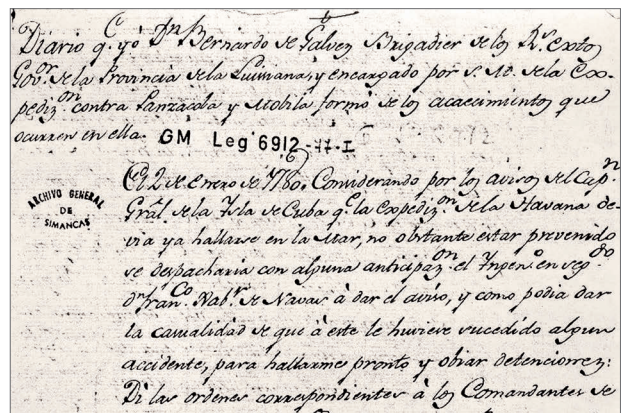 Diario q.e yo Dn Bernardo de Galvez Brigadier de los Rs. exto
Govor. de la Provincia de la Luiciana, y encargado por S. M. de la Cox-
pedizon contra Panzacola y Mobila formo de los acaecimientos que
ocurren en ella.
GM Leg 6912
El 2 de Enero de 1780. Considerando por los avisos del Capn
Gräl de la Ysla de Cuba qe la expedizon de la Havana de-
via ya hallarse en la Mar, no obstante estar prevenido
ARCHIVO GENERAL
DE
SIMANCAS
se despacharia con alguna anticipazon el Ingeno en segdo
Dn Franco Nabr de Navas à dar el aviso, y como podia dar
la casualidad de que à este le huviese sucedido algun
accidente, para hallarme pronto y obiar detenciones:
Di las ordenes correspondientes à los Comandantes de